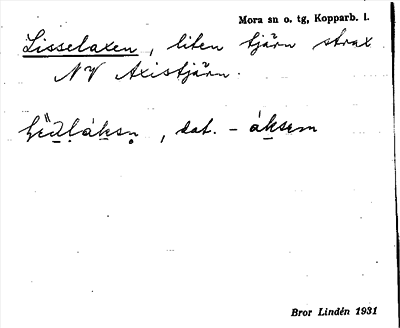 Mora sn o. tg, Kopparb. l.
Lisselaxen, liten tjärn strax
NV Axistjärn.
, dat. - áksem
Bror Lindén 1931